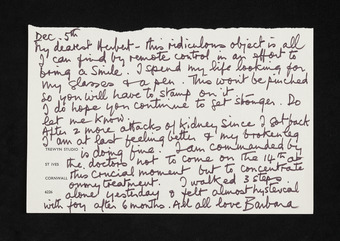 Dec. 5th
My dearest Herbert – this ridiculous object is all
I can find by remote control in an effort to
bring a smile. I spend my life looking for
my glasses & a pen. This won't be pinched
so you will have to stamp on it.
I do hope you continue to get stronger. Do
let me know.
After 2 more attacks of kidney since I got back
I am at last feeling better & my broken leg
is doing fine. I am commanded by
TREWYN STUDIO
the doctors not to come on the 14th at
ST IVES
this crucial moment but to concentrate
CORNWALL
on my treatment. I walked 3 steps
alone yesterday & felt almost hysterical
with joy after 6 months. All all love Barbara